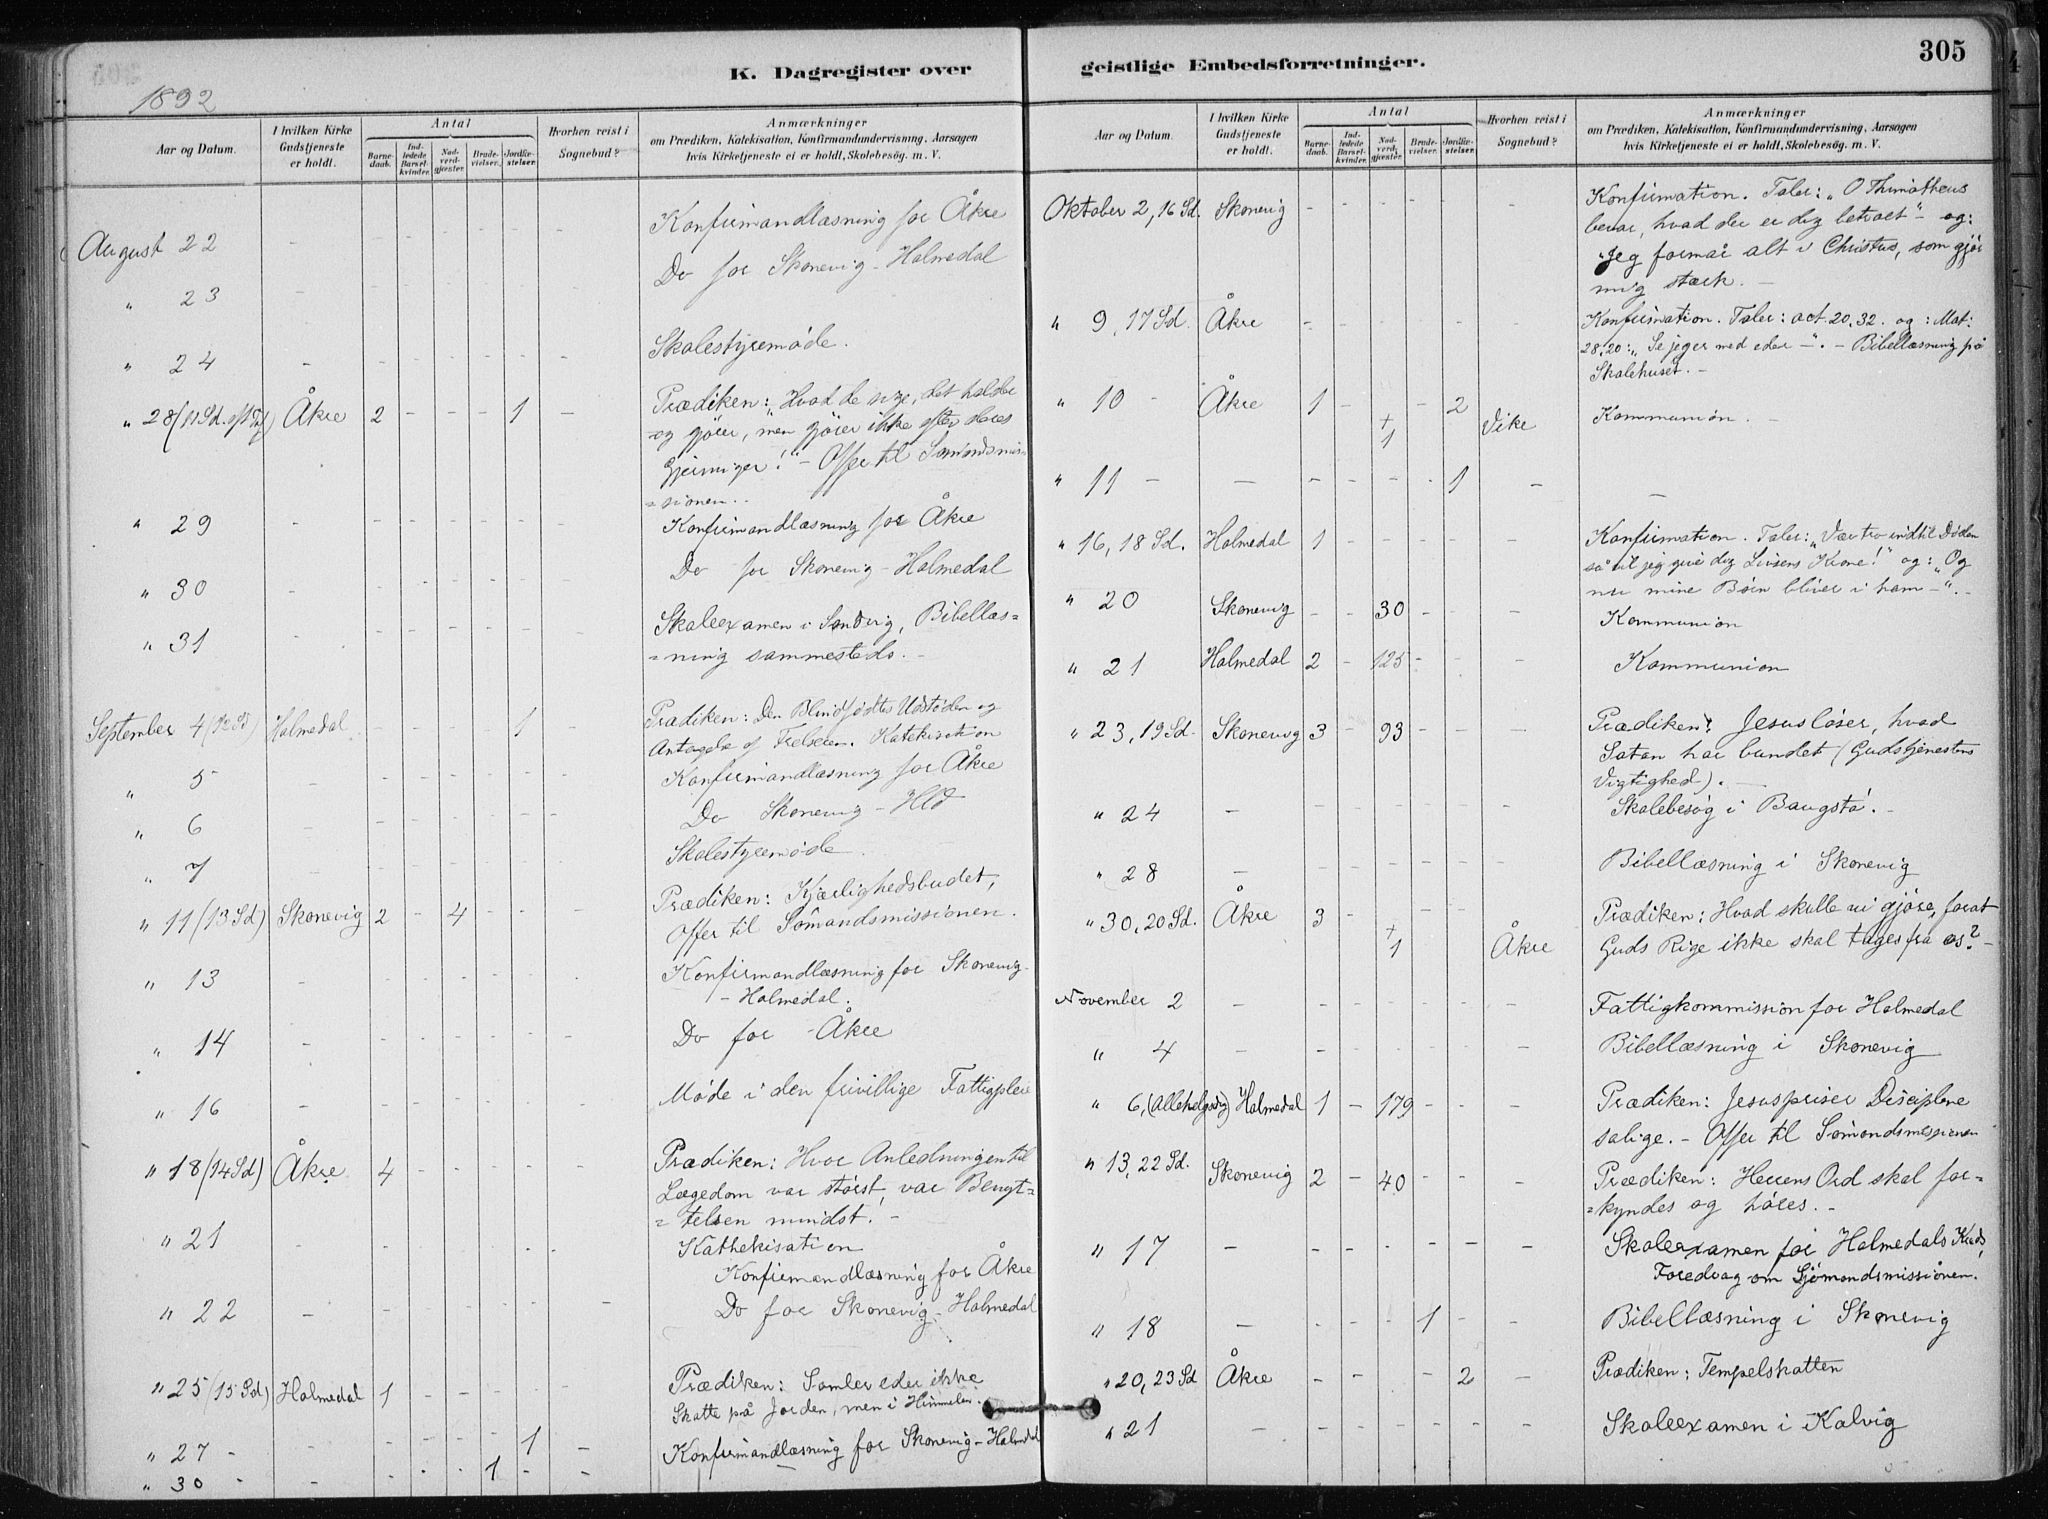 K. Dagregister over
1892
Aar og Datum.
I hvilken Kirke Gudstjeneste er holdt.
Antal
Barnedaab.
Indledede Barselkvinder.
Nadverdgjæster.
Brudevielser.
Jordfæstelser.
Hvorhen reist i Sognebud?
Anmærkninger
om Prædiken, Katekisation, Konfirmandundervisning, Aarsagen
hvis Kirketjeneste ei er holdt, Skolebesøg. m. V.
August 22 - - - - - - - Konfirmandlæsning for Åkre
" 23 - - - - - - - Do for Skonevig-Holmedal
" 24 - - - - - - - Skolestyremøde.
" 28 (11 Sd. eft Tr) Åkre 2 - - - 1 - Prædiken: "Hvad de sige, det holder
og gjører, men gjører ikke efter deres
Gjerninger!" - Offer til Sømandsmis=
=sionen.
" 29 - - - - - - - Konfirmandlæsning for Åkre
" 30 - - - - - - - Do for Skonevig-Holmedal
" 31 - - - - - - - Skoleexamen i Sandvig, Bibellæs=
=ning sammesteds. -
September 4 (12 Sd) Holmedal - - - - 1 - Prædiken: Den Blindfødte Udstødes og
Antages af Frelseren. Katekisation
" 5 - - - - - - - Konfirmandlæsning for Åkre
" 6 - - - - - - - Do Skonevig - Hld
" 7 - - - - - - - Skolestyremøde.
" 11 (13 Sd) Skonevig 2 - 4 - - - Prædiken: Kjærlighedsbudet,
Offer til Sømandsmissionen.
" 13 - - - - - - - Konfirmandlæsning for Skonevig
- Holmedal.
" 14 - - - - - - - Do for Åkre
" 16 - - - - - - - Møde i den frivillige Fattigpleie
" 18 (14 Sd) Åkre 4 - - - - - Prædiken: Hvor Anledningen til
Lægedom var størst, var Benyt=
=telsen mindst. -
Kathekisation
" 21 - - - - - - - Konfirmandlæsning for Åkre
" 22 - - - - - - - Do for Skonevig-Holmedal
" 25 (15 Sd) Holmedal 1 - - - - - Prædiken: Samler eder ikke
Skatte på Jorden, men i Himmelen.
" 27 - - - - - 1 - Konfirmandlæsning for Skonevig-Holmedal
" 30 - - - - 1 - - -
geistlige Embedsforretninger.
305
Aar og Datum.
I hvilken Kirke Gudstjeneste er holdt.
Antal
Barnedaab.
Indledede Barselkvinder.
Nadverdgjæster.
Brudevielser.
Jordfæstelser.
Hvorhen reist i Sognebud?
Anmærkninger
om Prædiken, Katekisation, Konfirmandundervisning, Aarsagen
hvis Kirketjeneste ei er holdt, Skolebesøg. m. V.
Oktober 2, 16 Sd. Skonevig - - - - - - Konfirmation. Taler: "O Thimotheus
bevar, hvad der er dig betroet" - og:
"Jeg formår alt i Christus, som gjør
mig stærk. -
" 9, 17 Sd. Åkre - - - - - - Konfirmation. Taler: act. 20, 32. og: Mat:
28, 20: "Se jeg er med eder -". - Bibellæsning på
Skolehuset. -
" 10 - Åkre 1 - + 1 - 2 Vike Kommunion. -
" 11 - - - - - - 1 - -
" 16, 18 Sd. Holmedal 1 - - - - - Konfirmation. Taler: "Vær tro indtil Døden
så vil jeg give dig Livsens Krone!" og: "Og
nu mine Børn bliver i ham -". -
" 20 Skonevig - - 30 - - - Kommunion
" 21 Holmedal 2 - 125 - - - Kommunion
" 23, 19 Sd. Skonevig 3 - 93 - - - Prædiken: Jesus løser, hvad
Satan har bundet (Gudstjenestens
Vigtighed). -
" 24 - - - - - - - Skolebesøg i Baugstø. -
" 28 - - - - - - - Bibellæsning i Skonevig
" 30, 20 Sd. Åkre 3 - + 1 - - Åkre Prædiken: Hvad skulle vi gjøre, forat
Guds Rige ikke skal tages fra os? -
November 2 - - - - - - - Fattigkommission for Holmedal
" 4 - - - - - - - Bibellæsning i Skonevig
" 6, (Allehelgsdg) Holmedal 1 - 179 - - - Prædiken: Jesus priser Disciplene
salige. - Offer til Sømandsmissionen
" 13, 22 Sd. Skonevig 2 - 40 - - - Prædiken: Herrens Ord skal for=
=kyndes og høres. -
" 17 - - - - - - - Skoleexamen for Holmedals Kreds,
Foredrag om Sjømandsmissionen.
" 18 - - - - 1 - - Bibellæsning i Skonevig
" 20, 23 Sd Åkre - - - - 2 - Prædiken: Tempelskatten
" 21 - - - - - - - Skoleexamen i Kalvig